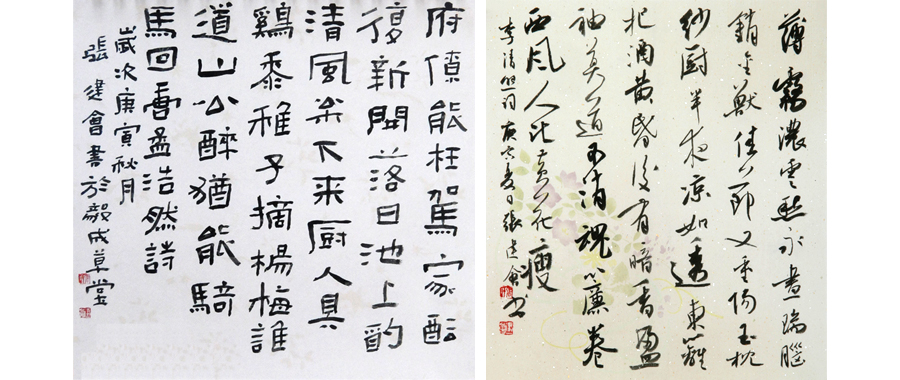 府僚能枉駕家醖
復新開落日池上酌
清風松下来厨人具
鷄黍稚子摘楊梅誰
道山公醉猶能騎
馬回孟浩然詩
歲次庚寅秋月
張建會書於毅成草堂
薄霧濃雲愁永晝瑞腦
銷金獸佳節又重陽玉枕
紗厨半夜凉初透東籬
把酒黄昏後有暗香盈
袖莫道不消魂簾卷
西風人比黄花瘦
李清照詞庚寅夏日張建會書